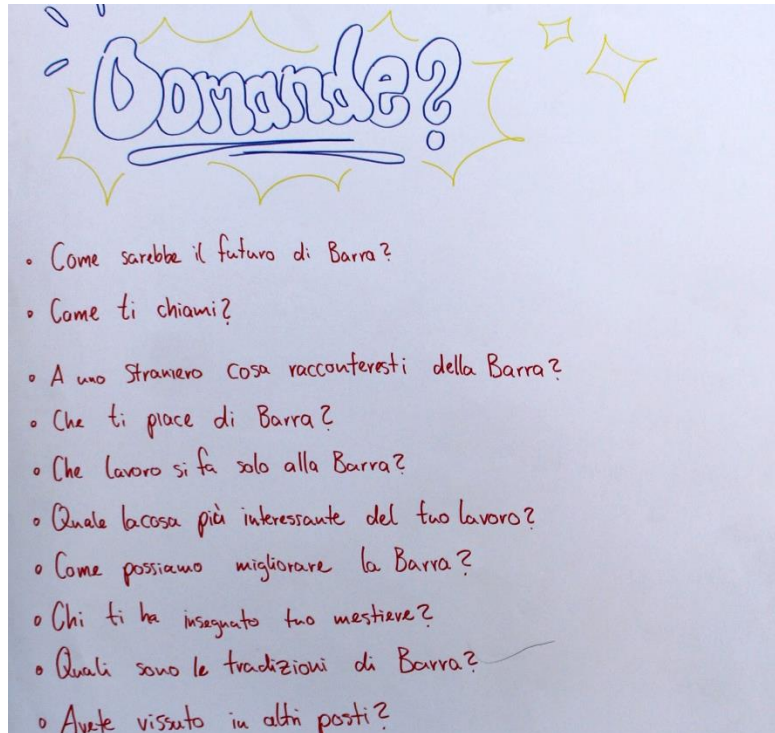 Domande?
• Come sarebbe il futuro di Barra?
• Come ti chiami?
• A uno straniero cosa racconteresti della Barra?
• Che ti piace di Barra?
• Che lavoro si fa solo alla Barra?
• Quale lacosa più interessante del tuo lavoro?
• Come possiamo migliorare la Barra?
• Chi ti ha insegnato tuo mestiere?
• Quali sono le tradizioni di Barra?
• Avete vissuto in altri posti?